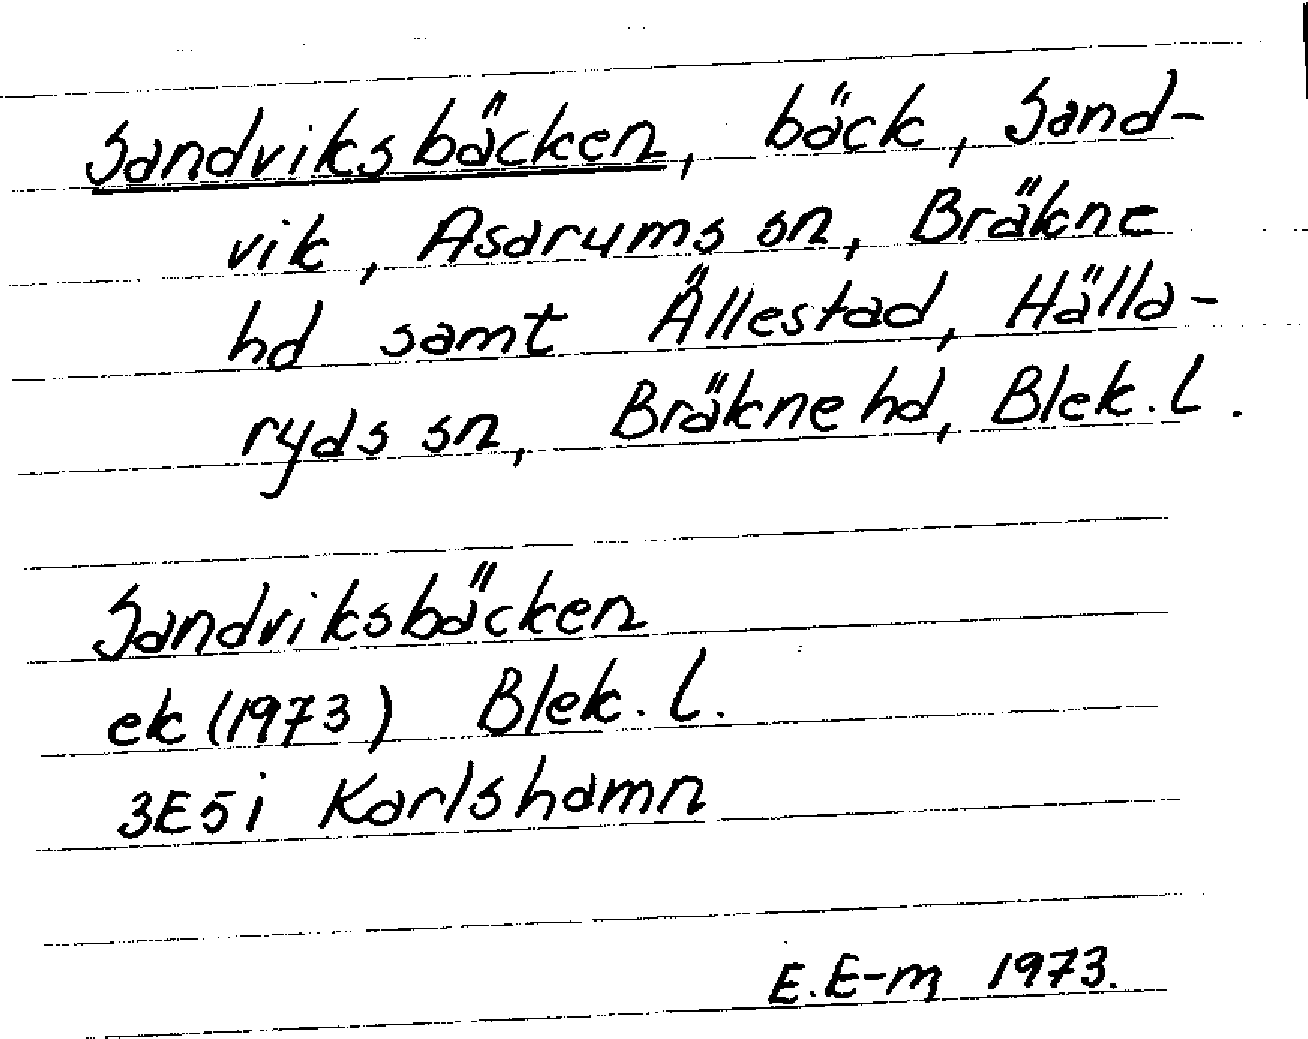 Sandviksbäcken, bäck, Sand-
vik, Asarums sn, Bräkne
hd samt Ällestad, Hälla-
ryds sn, Bräkne hd, Blek. l.
Sandviksbäcken
ek (1973) Blek. l.
3E5i Karlshamn
E. E-m 1973.